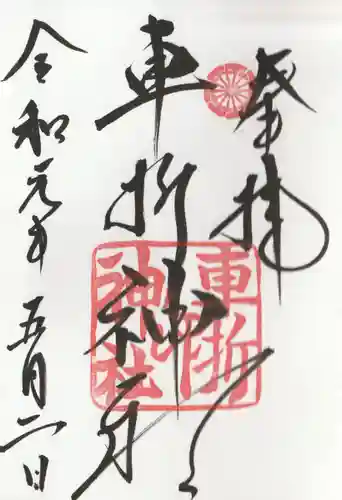 奉拝
車折神社
車折神社
令和元年
五月二日